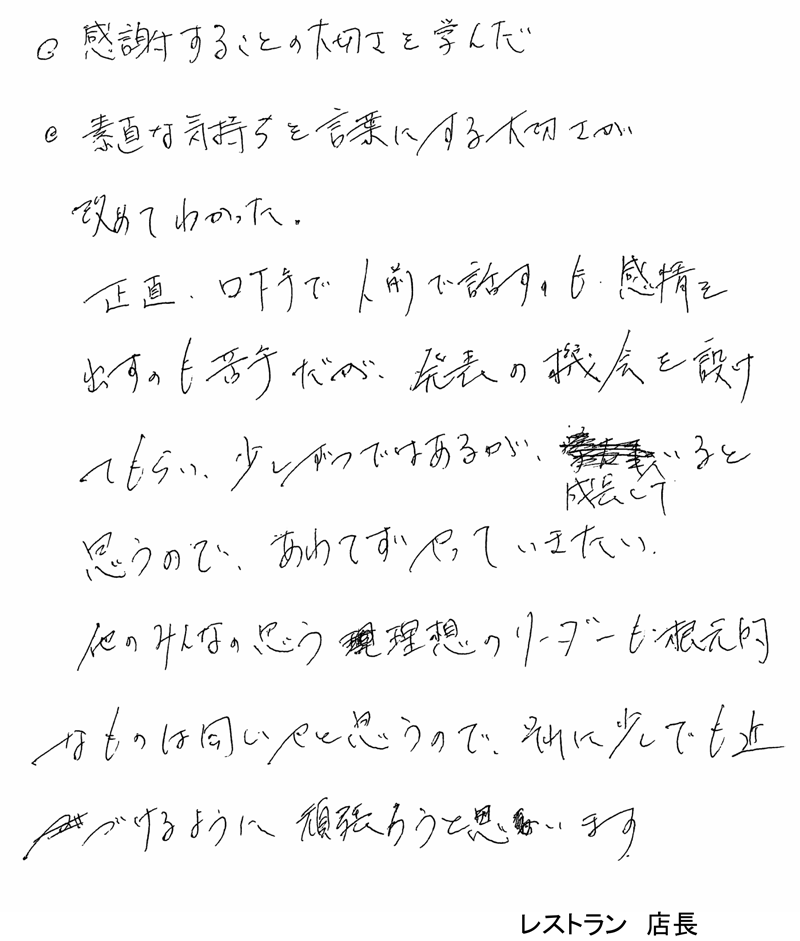 ◎ 感謝することの大切さを学んだ
◎ 素直な気持ちを言葉にする大切さが
改めてわかった。
正直、口下手で人前で話すのも、感情を
出すのも苦手だが、発表の機会を設け
てもらい、少しずつではあるが、いると
成長して
思うので、あわてずやっていきたい。
他のみんなの思う理想のリーダーも根元的
なものは同じやと思うので、それに少しでも近
づけるように頑張ろうと思います
レストラン 店長